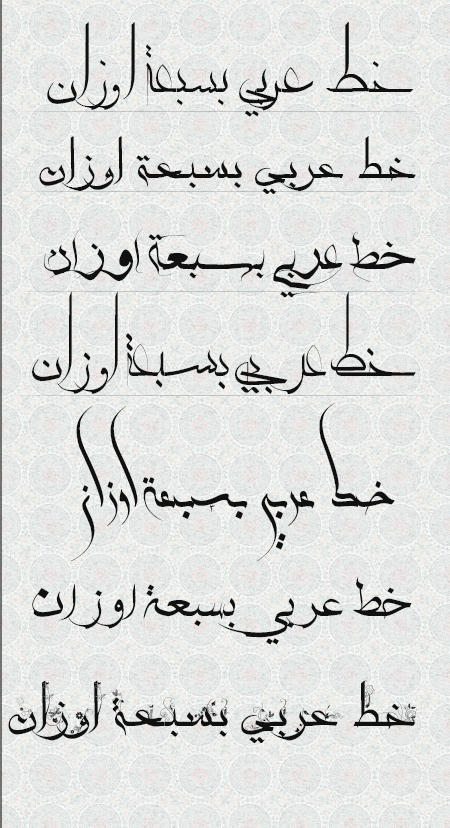 خط عربي بسبعة اوزان
خط عربي بسبعة اوزان
خط عربي بسبعة اوزان
خط عربي بسبعة اوزان
خط عربي بسبعة اوزان
خط عربي بسبعة اوزان
خط عربي بسبعة اوزان